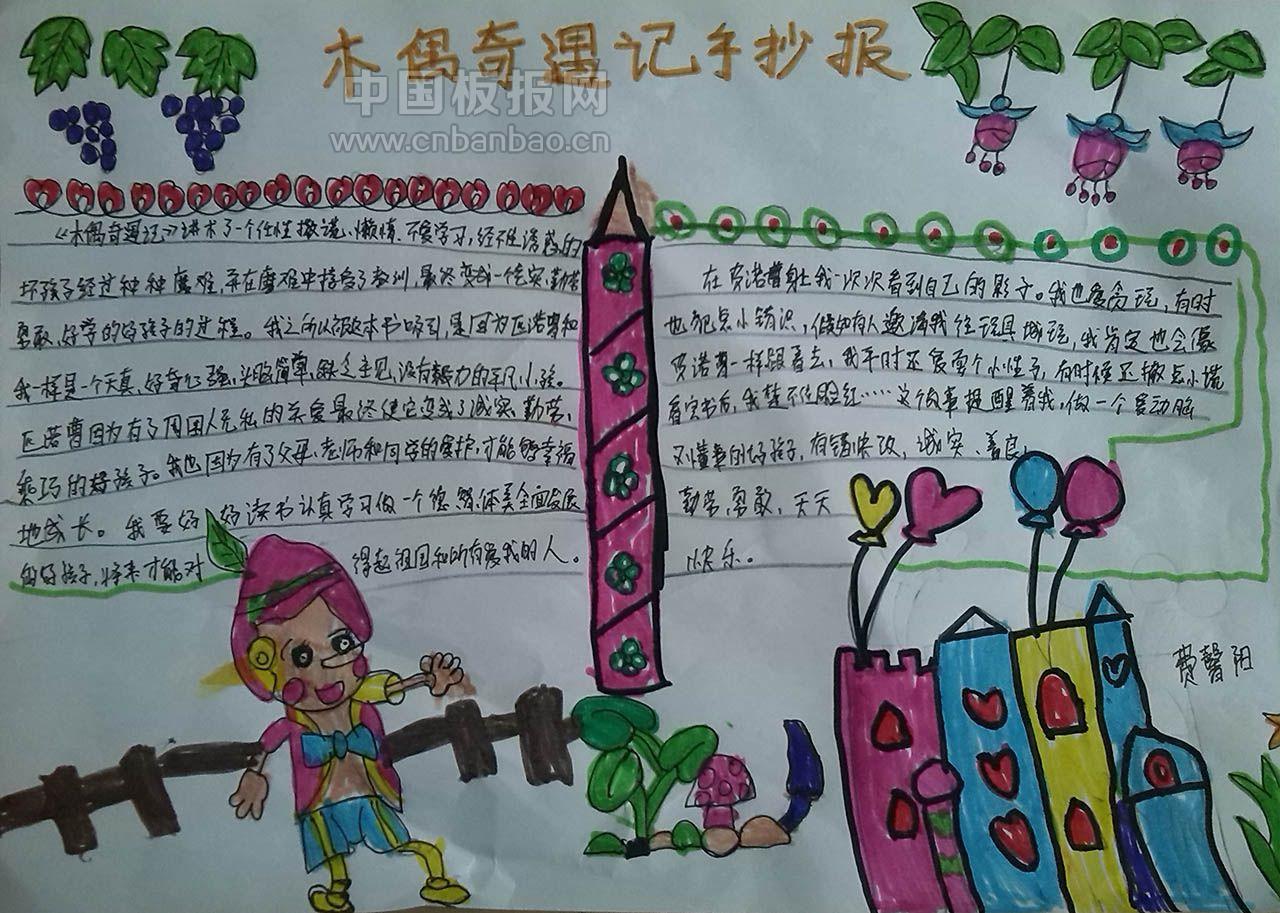 木偶奇遇记手抄报
中国板报网
www.cnbanbao.cn
《木偶奇遇记》讲术了一个任性、撒谎、懒惰、不爱学习,经不住诱惑的
坏孩子经过种种磨难,并在磨难中接受了教训,最终变成一个诚实、勤劳
勇敢、好学的好孩子的过程。我之所以被这本书吸引,是因为匹诺曹和
我一样是一个天真、好奇心强、头脑简单、缺乏主见、没有毅力的平凡小孩。
匹诺曹因为有了周围人无私的关爱最终使它变成了诚实、勤劳、
乖巧的好孩子。我也因为有了父母、老师和同学的爱护,才能够幸福
地成长。我要好好读书认真学习做一个德、智、体、美全面发展
的好孩子,将来才能对得起祖国和所有爱我的人。
在匹诺曹身上我一次次看到自己的影子。我也爱贪玩,有时
也犯点小错误,假如有人邀请我往玩具城玩,我肯定也会像
匹诺曹一样跟着去,我平时还爱耍个小性子,有时候还撒点小谎
看完书后,我禁不住脸红……这个故事提醒着我,做一个爱动脑
又懂事的好孩子,有错快改,诚实、善良、
勤劳、勇敢,天天
快乐。
费馨阳